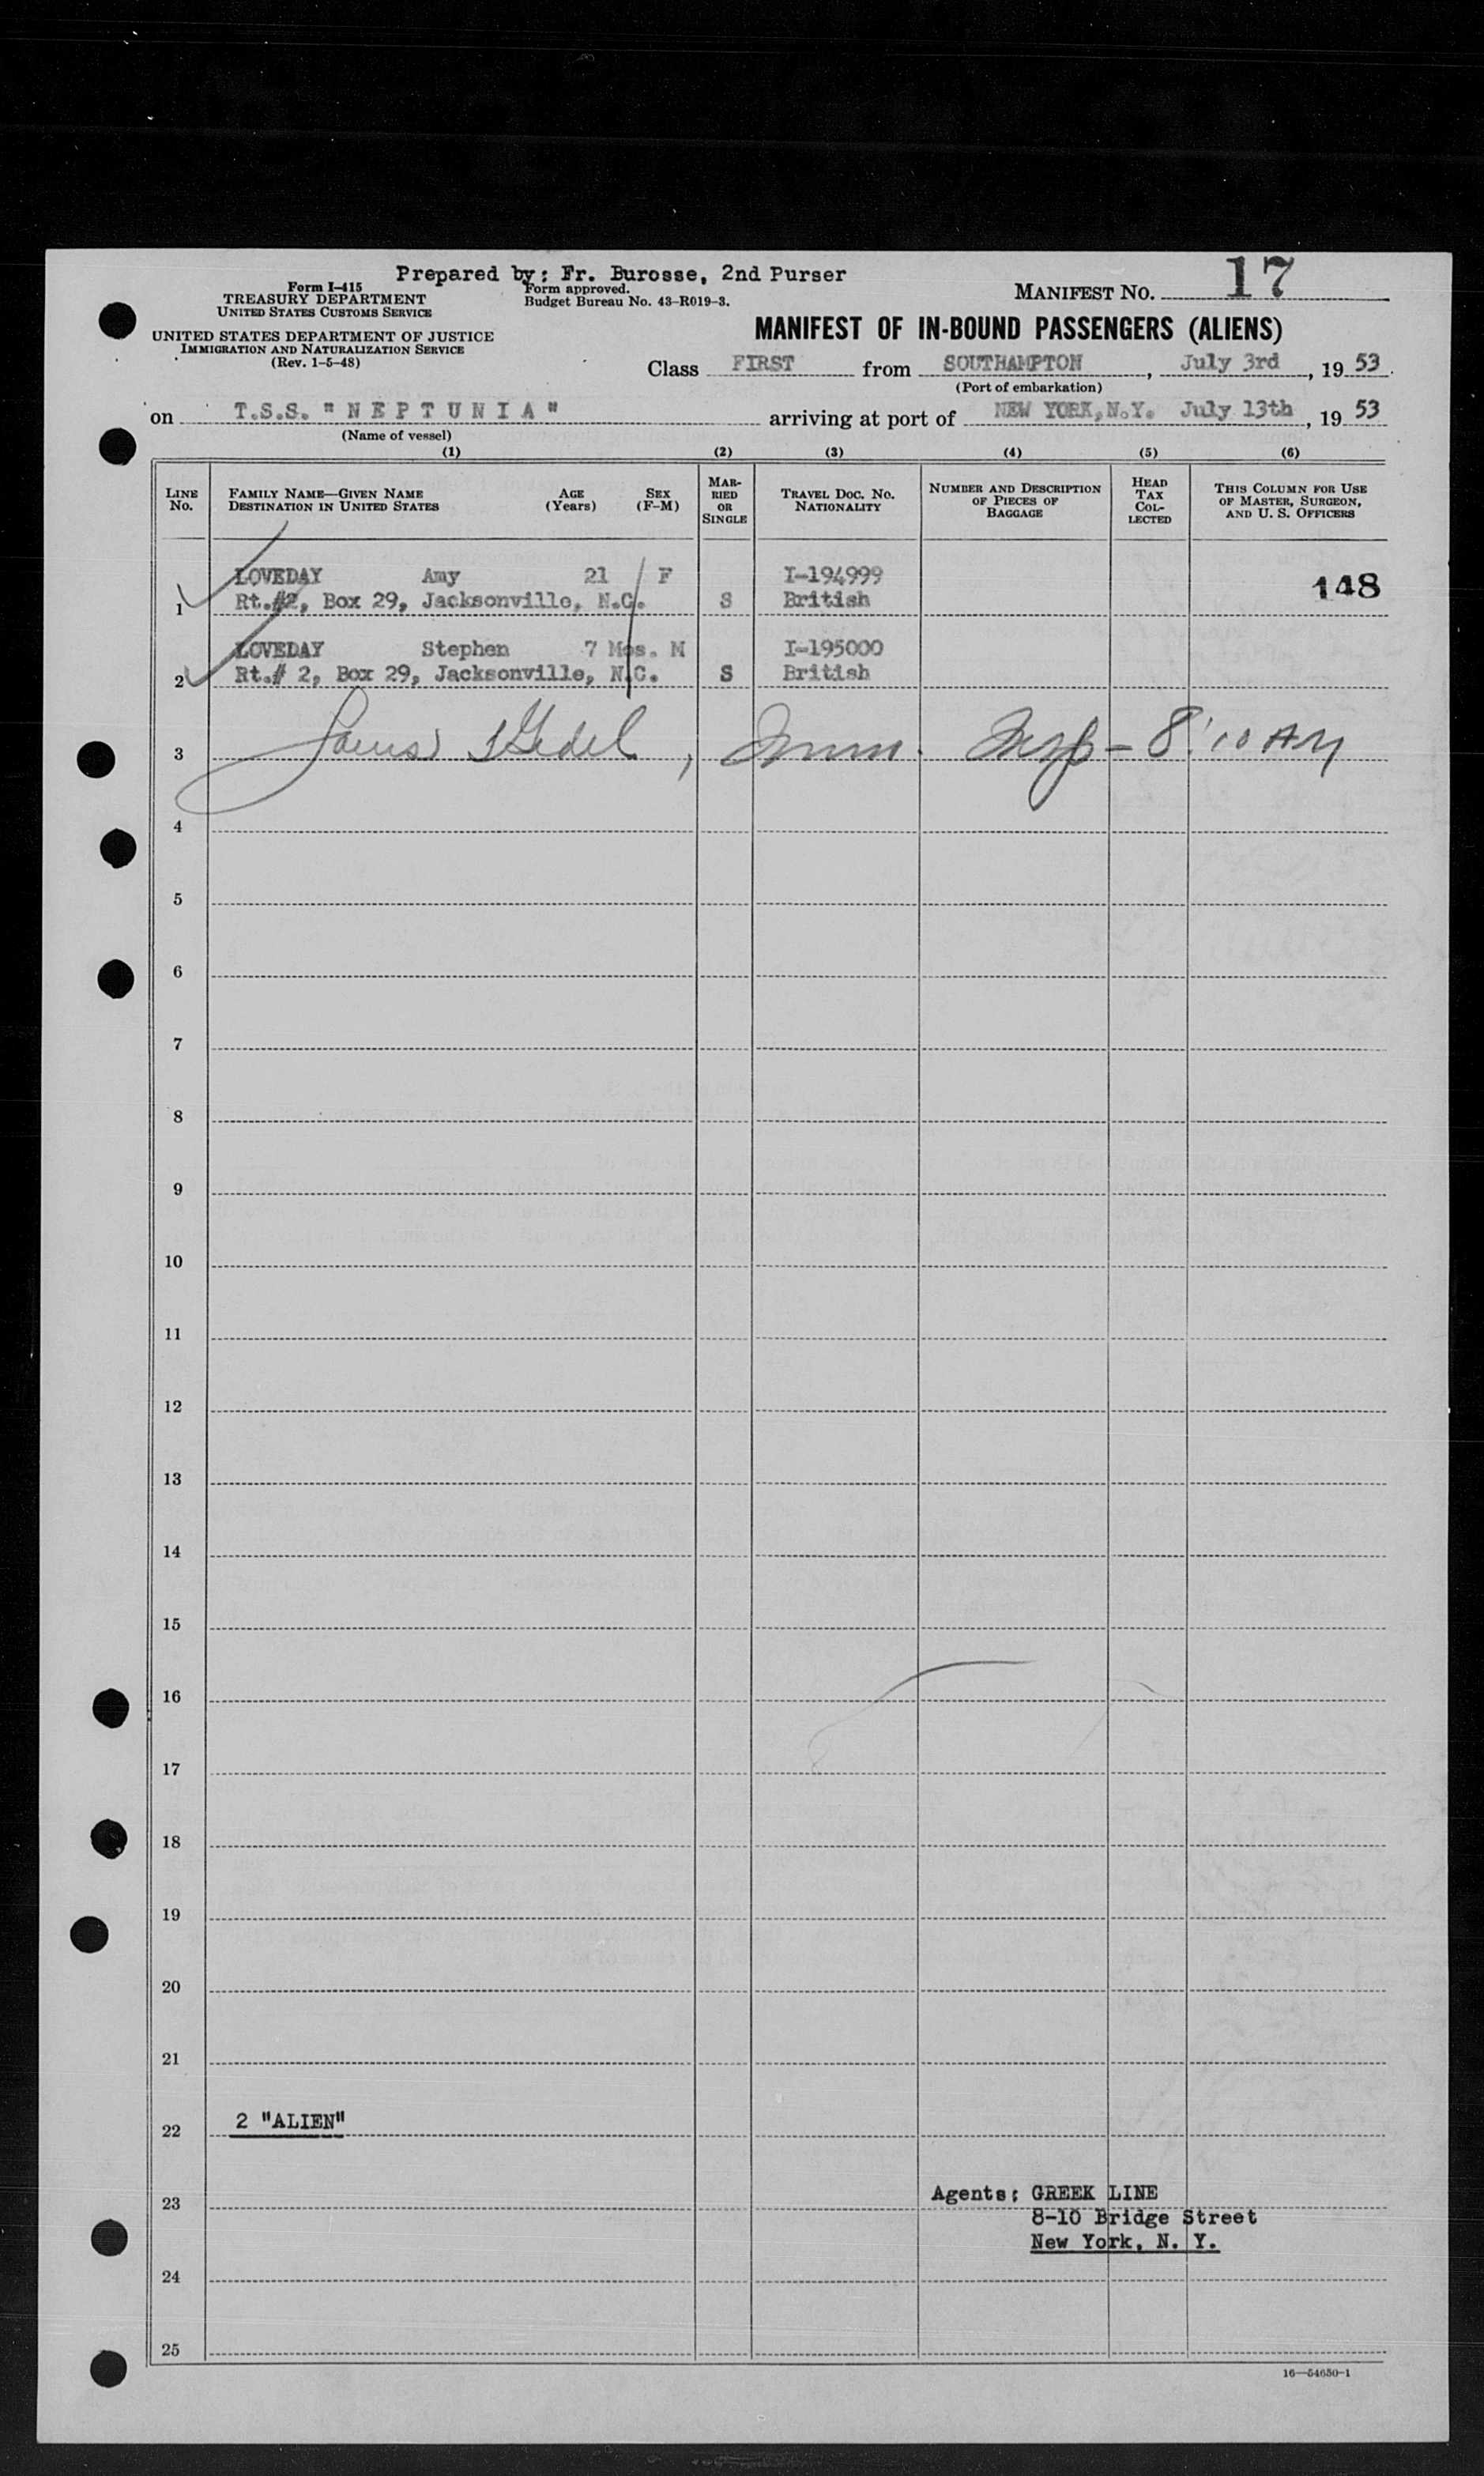 Prepared by: Fr. Burosse, 2nd Purser
Form I-415
TREASURY DEPARTMENT
UNITED STATES CUSTOMS SERVICE
Form approved.
Budget Bureau No. 43-R019-3.
MANIFEST NO. 17
UNITED STATES DEPARTMENT OF JUSTICE
IMMIGRATION AND NATURALIZATION SERVICE
(Rev. 1-5-48)
MANIFEST OF IN-BOUND PASSENGERS (ALIENS)
Class FIRST from SOUTHAMPTON, July 3rd, 19 53
(Port of embarkation)
on T.S.S. "NEPTUNIA" arriving at port of NEW YORK, N.Y. July 13th, 19 53
(Name of vessel)
(1) (2) (3) (4) (5) (6)
LINE No.
FAMILY NAME—GIVEN NAME
DESTINATION IN UNITED STATES
AGE (Years)
SEX (F-M)
MARRIED OR SINGLE
TRAVEL DOC. NO.
NATIONALITY
NUMBER AND DESCRIPTION OF PIECES OF BAGGAGE
HEAD TAX COLLECTED
THIS COLUMN FOR USE OF MASTER, SURGEON, AND U. S. OFFICERS
LOVEDAY Amy 21 F I-194999 148
1 Rt.#2, Box 29, Jacksonville, N.C. S British
LOVEDAY Stephen 7 Mos. M I-195000
2 Rt.# 2, Box 29, Jacksonville, N.C. S British
3 Imm. Insp - 8:10 AM
4
5
6
7
8
9
10
11
12
13
14
15
16
17
18
19
20
21
22 2 "ALIEN"
23 Agents: GREEK LINE
8-10 Bridge Street
New York, N. Y.
24
25
16—54650-1